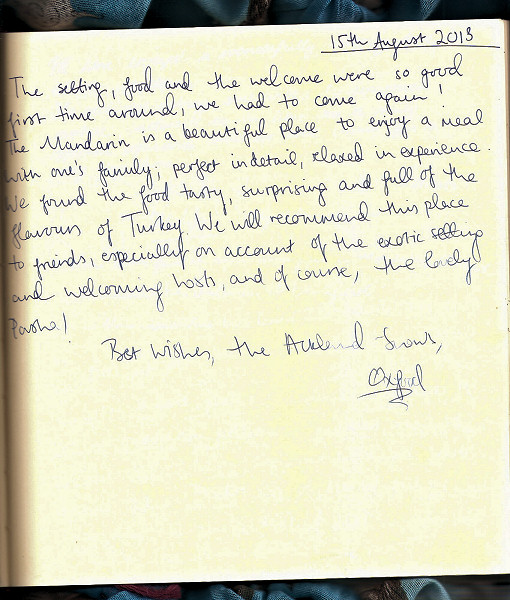 15th August 2013
The setting, food and the welcome were so good
first time around, we had to come again!
The Mandarin is a beautiful place to enjoy a meal
with one's family; perfect in detail, relaxed in experience.
We found the food tasty, surprising and full of the
flavours of Turkey. We will recommend this place
to friends, especially on account of the exotic setting
and welcoming hosts, and of course, the lovely
Pasha!
Best wishes, the Ackland-Snows,
Oxford